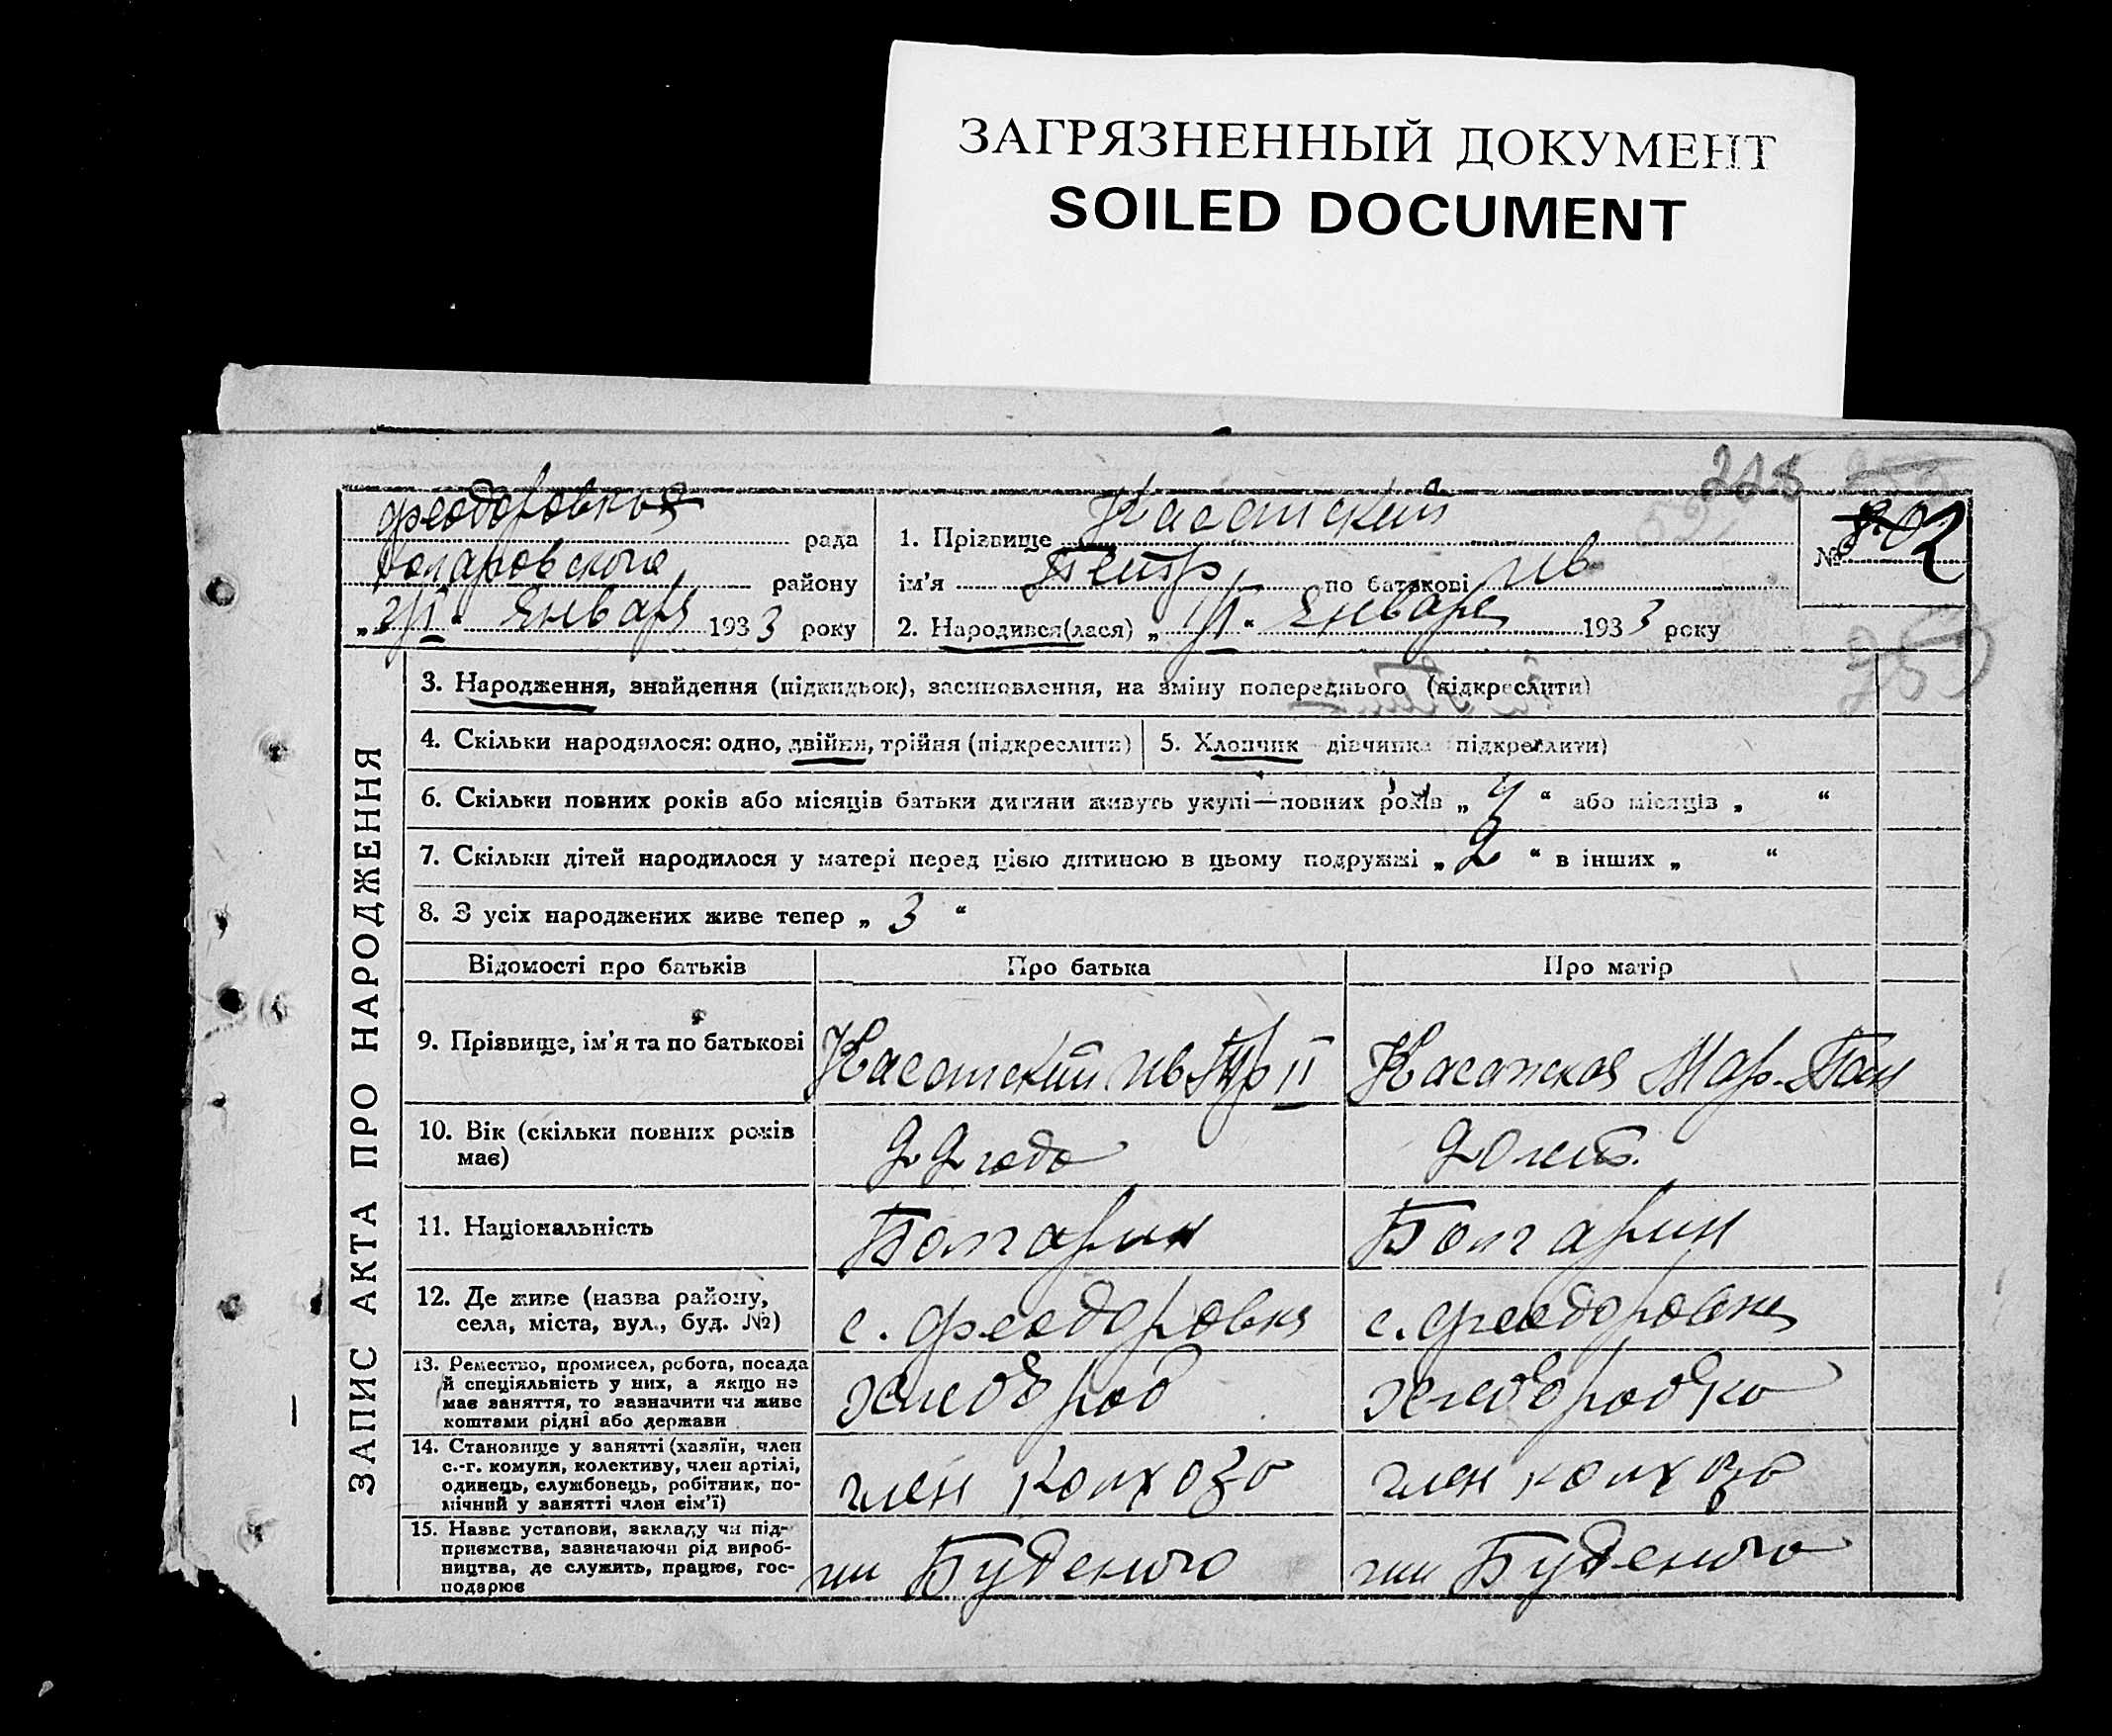 ЗАГРЯЗНЕННЫЙ ДОКУМЕНТ
SOILED DOCUMENT
228
Феодоровская рада
району
"2/I" Января 1933 року
1. Прізвище Касатский
ім'я Петр, по батькові Ив
2. Народився(лася) "1/I" Января 1933 року
№ 2
253
ЗАПИС АКТА ПРО НАРОДЖЕННЯ
3. Народження, знайдення (підкидьок), засиновлення, на зміну попереднього (підкреслити)
4. Скільки народилося: одно, двійня, трійня (підкреслити)
5. Хлопчик дівчинка підкреслити)
6. Скільки повних років або місяців батьки дитини живуть укупі—повних років „ 4 “ або місяців „ “
7. Скільки дітей народилося у матері перед цією дитиною в цьому подружжі „ 2 “ в інших „ “
8. З усіх народжених живе тепер „ 3 “
Відомості про батьків
Про батька
Про матір
9. Прізвище, ім'я та по батькові
Касатский Ив II
Касатская Мар.
10. Вік (скільки повних років
має)
22 года
20 лет.
11. Національність
Болгарин
Болгарин
12. Де живе (назва району,
села, міста, вул., буд. №)
с. Феодоровка
с. Феодоровка
13. Ремество, промисел, робота, посада
й спеціяльність у них, а якщо не
має заняття, то зазначити чи живе
коштами рідні або держави
хлебороб
хлеборобка
14. Становище у занятті (хазяїн, член
с.-г. комуни, колективу, член артілі,
одинець, службовець, робітник, по-
мічний у занятті член сім'ї)
член колхоза
член колхоза
15. Назва установи, закладу чи під-
приємства, зазначаючи рід вироб-
ництва, де служить, працює, гос-
подарює
им Буденого
им Буденого